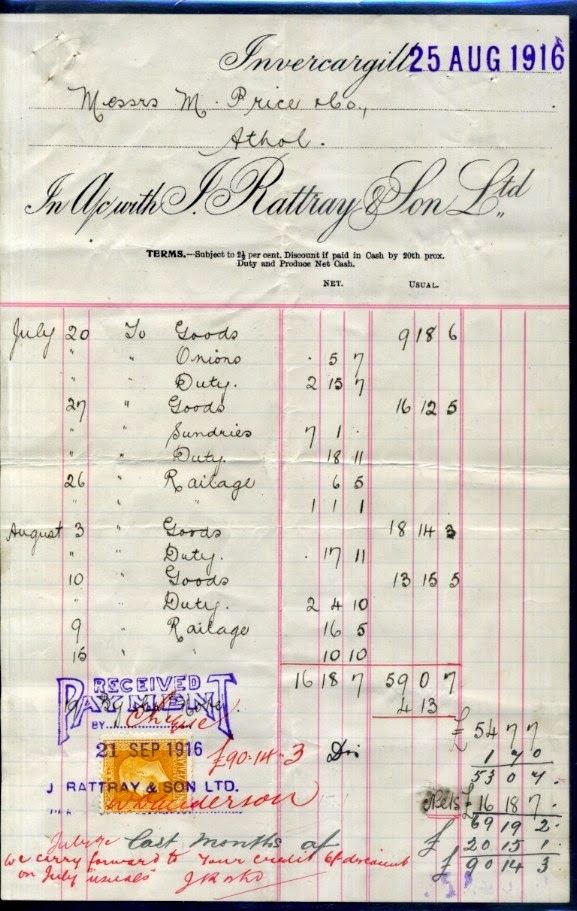 Invercargill 25 AUG 1916
Messrs M. Price & Co.,
Athol.
In A/c with J. Rattray & Son Ltd
TERMS.—Subject to 2½ per cent. Discount if paid in Cash by 20th prox.
Duty and Produce Net Cash.
NET. USUAL.
July 20 To Goods 9 18 6
" " Onions . 5 7
" " Duty. 2 15 7
27 " Goods 16 12 5
" " Sundries 7 1 .
" " Duty. 18 11
26 " Railage 6 5
" " 1 1 1
August 3 " Goods 18 14 3
" " Duty. . 17 11
10 " Goods 13 15 5
" Duty. 2 4 10
9 " Railage 16 5
15 " " 10 10
16 18 7 59 0 7
4 13
RECEIVED
PAYMENT
BY Cheque
21 SEP 1916
£90-14-3
J RATTRAY & SON LTD.
£ 54 7 7
1 7 0
53 0 7.
Nets £ 16 18 7.
69 19 2.
last months a/c £ 20 15 1
£ 90 14 3
we carry forward to your credit of discount
on July "usuals"